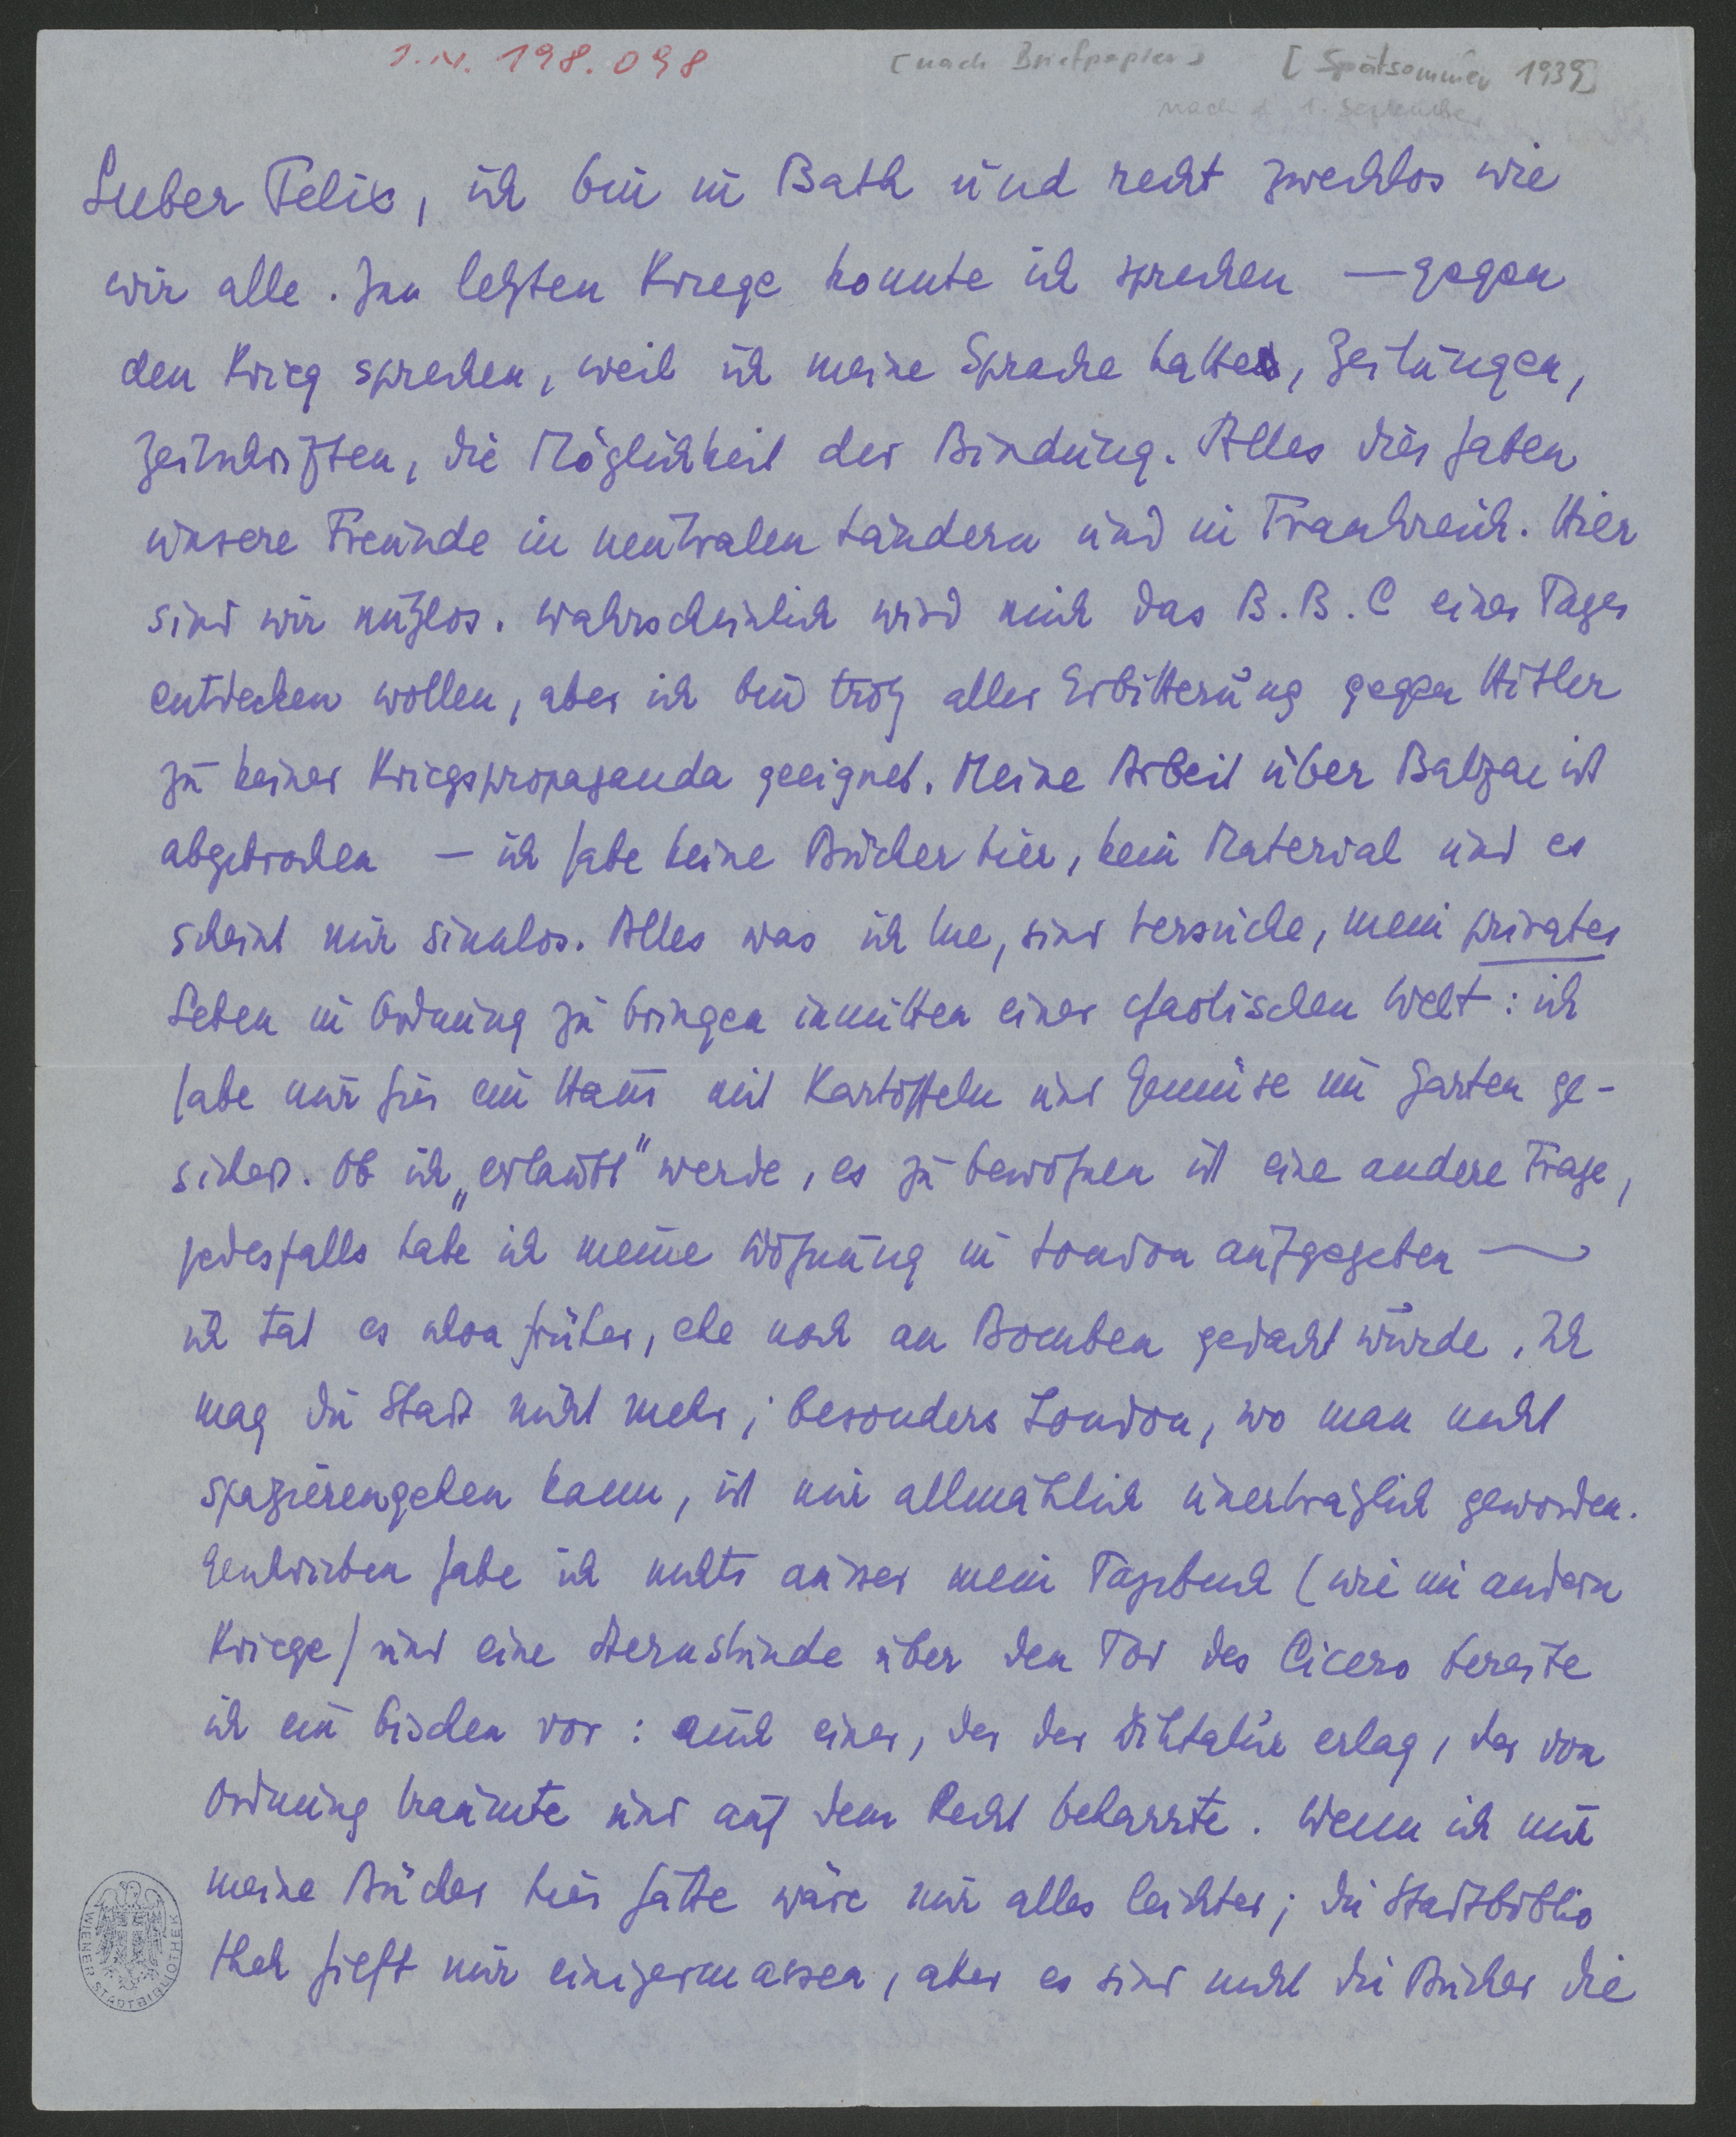 I.N. 198.098
[nach Briefpapier] [Spätsommer 1939]
nach d 1. September
Lieber Felix, ich bin in Bath und recht zwecklos wie
wir alle. Im letzten Kriege konnte ich sprechen — gegen
den Krieg sprechen, weil ich meine Sprache hatte, Zeitungen,
Zeitschriften, die Möglichkeit der Bindung. Alles dies haben
unsere Freunde in neutralen Ländern und in Frankreich. Hier
sind wir nutzlos. Wahrscheinlich wird mich das B.B.C eines Tages
entdecken wollen, aber ich bin trotz aller Erbitterung gegen Hitler
zu keiner Kriegspropaganda geeignet. Meine Arbeit über Balzac ist
abgebrochen — ich habe keine Bücher hier, kein Material und es
scheint mir sinnlos. Alles was ich tue, sind Versuche, mein privates
Leben in Ordnung zu bringen inmitten einer chaotischen Welt: ich
habe mir hier ein Haus mit Kartoffeln und Gemüse im Garten ge-
sichert. Ob ich „erlaubt" werde, es zu bewohnen ist eine andere Frage,
jedesfalls habe ich meine Wohnung in London aufgegeben —
ich tat es schon früher, ehe noch an Bomben gedacht wurde. Ich
mag die Stadt nicht mehr; besonders London, wo man nicht
spazierengehen kann, ist mir allmählich unerträglich geworden.
Geschrieben habe ich nichts ausser mein Tagebuch (wie im andern
Kriege) und eine Sternstunde über den Tod des Cicero bereite
ich ein bischen vor: auch einer, der der Diktatur erlag, der von
Ordnung träumte und auf dem Recht beharrte. Wenn ich nur
meine Bücher hier hätte wäre mir alles leichter; die Stadtbiblio
thek hilft mir einigermassen, aber es sind nicht die Bücher die
WIENER STADTBIBLIOTHEK